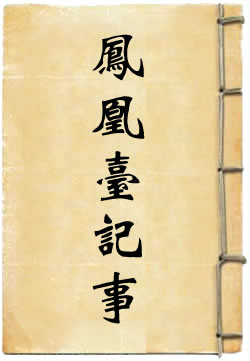 鳳凰臺記事